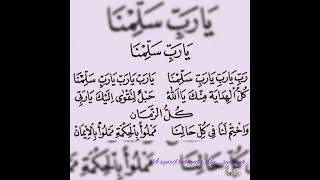 يَارَبِّ سَلِّمْنَا
يَارَبِّ سَلِّمْنَا
رَبِّ يَارَبِّ يَارَبِّ سَلِّمْنَا يَارَبِّ يَارَبِّ يَارَبِّ سَلِّمْنَا
كُلُّ الْهِدَايَة مِنْكَ يَااَللّٰهُ حَبْلٌ لِتَقْوٰى اِلَيْكَ يَارَبِّى
كُلُّ الزَّمَانِ
وَاخْتِمْ لَنَا فِى كُلِّ حَالِنَا مَمْلُوْأً بِالْحِكْمَةِ مَمْلُوْأً بِالْاِيْمَانِ
مَمْلُوْأً بِالْحِكْمَةِ مَمْلُوْ